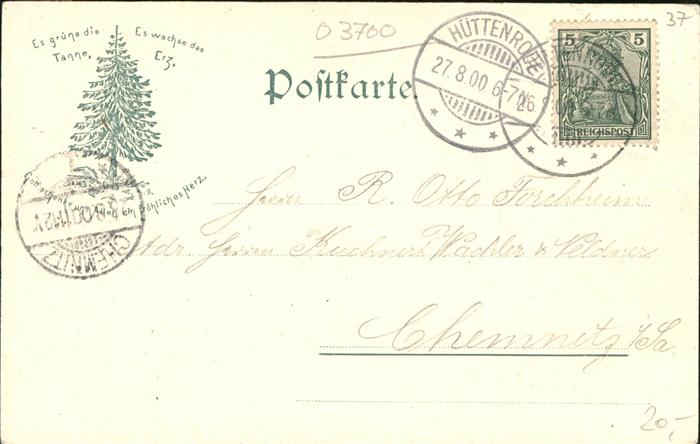 Es grüne die Tanne,
Es wachse das Erz,
Gott schenke uns allen ein fröhliches Herz.
Postkarte.
O 3700
37
HÜTTENRODE
27.8.00 6-7N
5 5
REICHSPOST
CHEMNITZ
8.00 11-12V
Herrn R. Otto Forchheim
Adr. Herren Kuchner Wachler & Veldner
Chemnitz i/Sa.
20,-